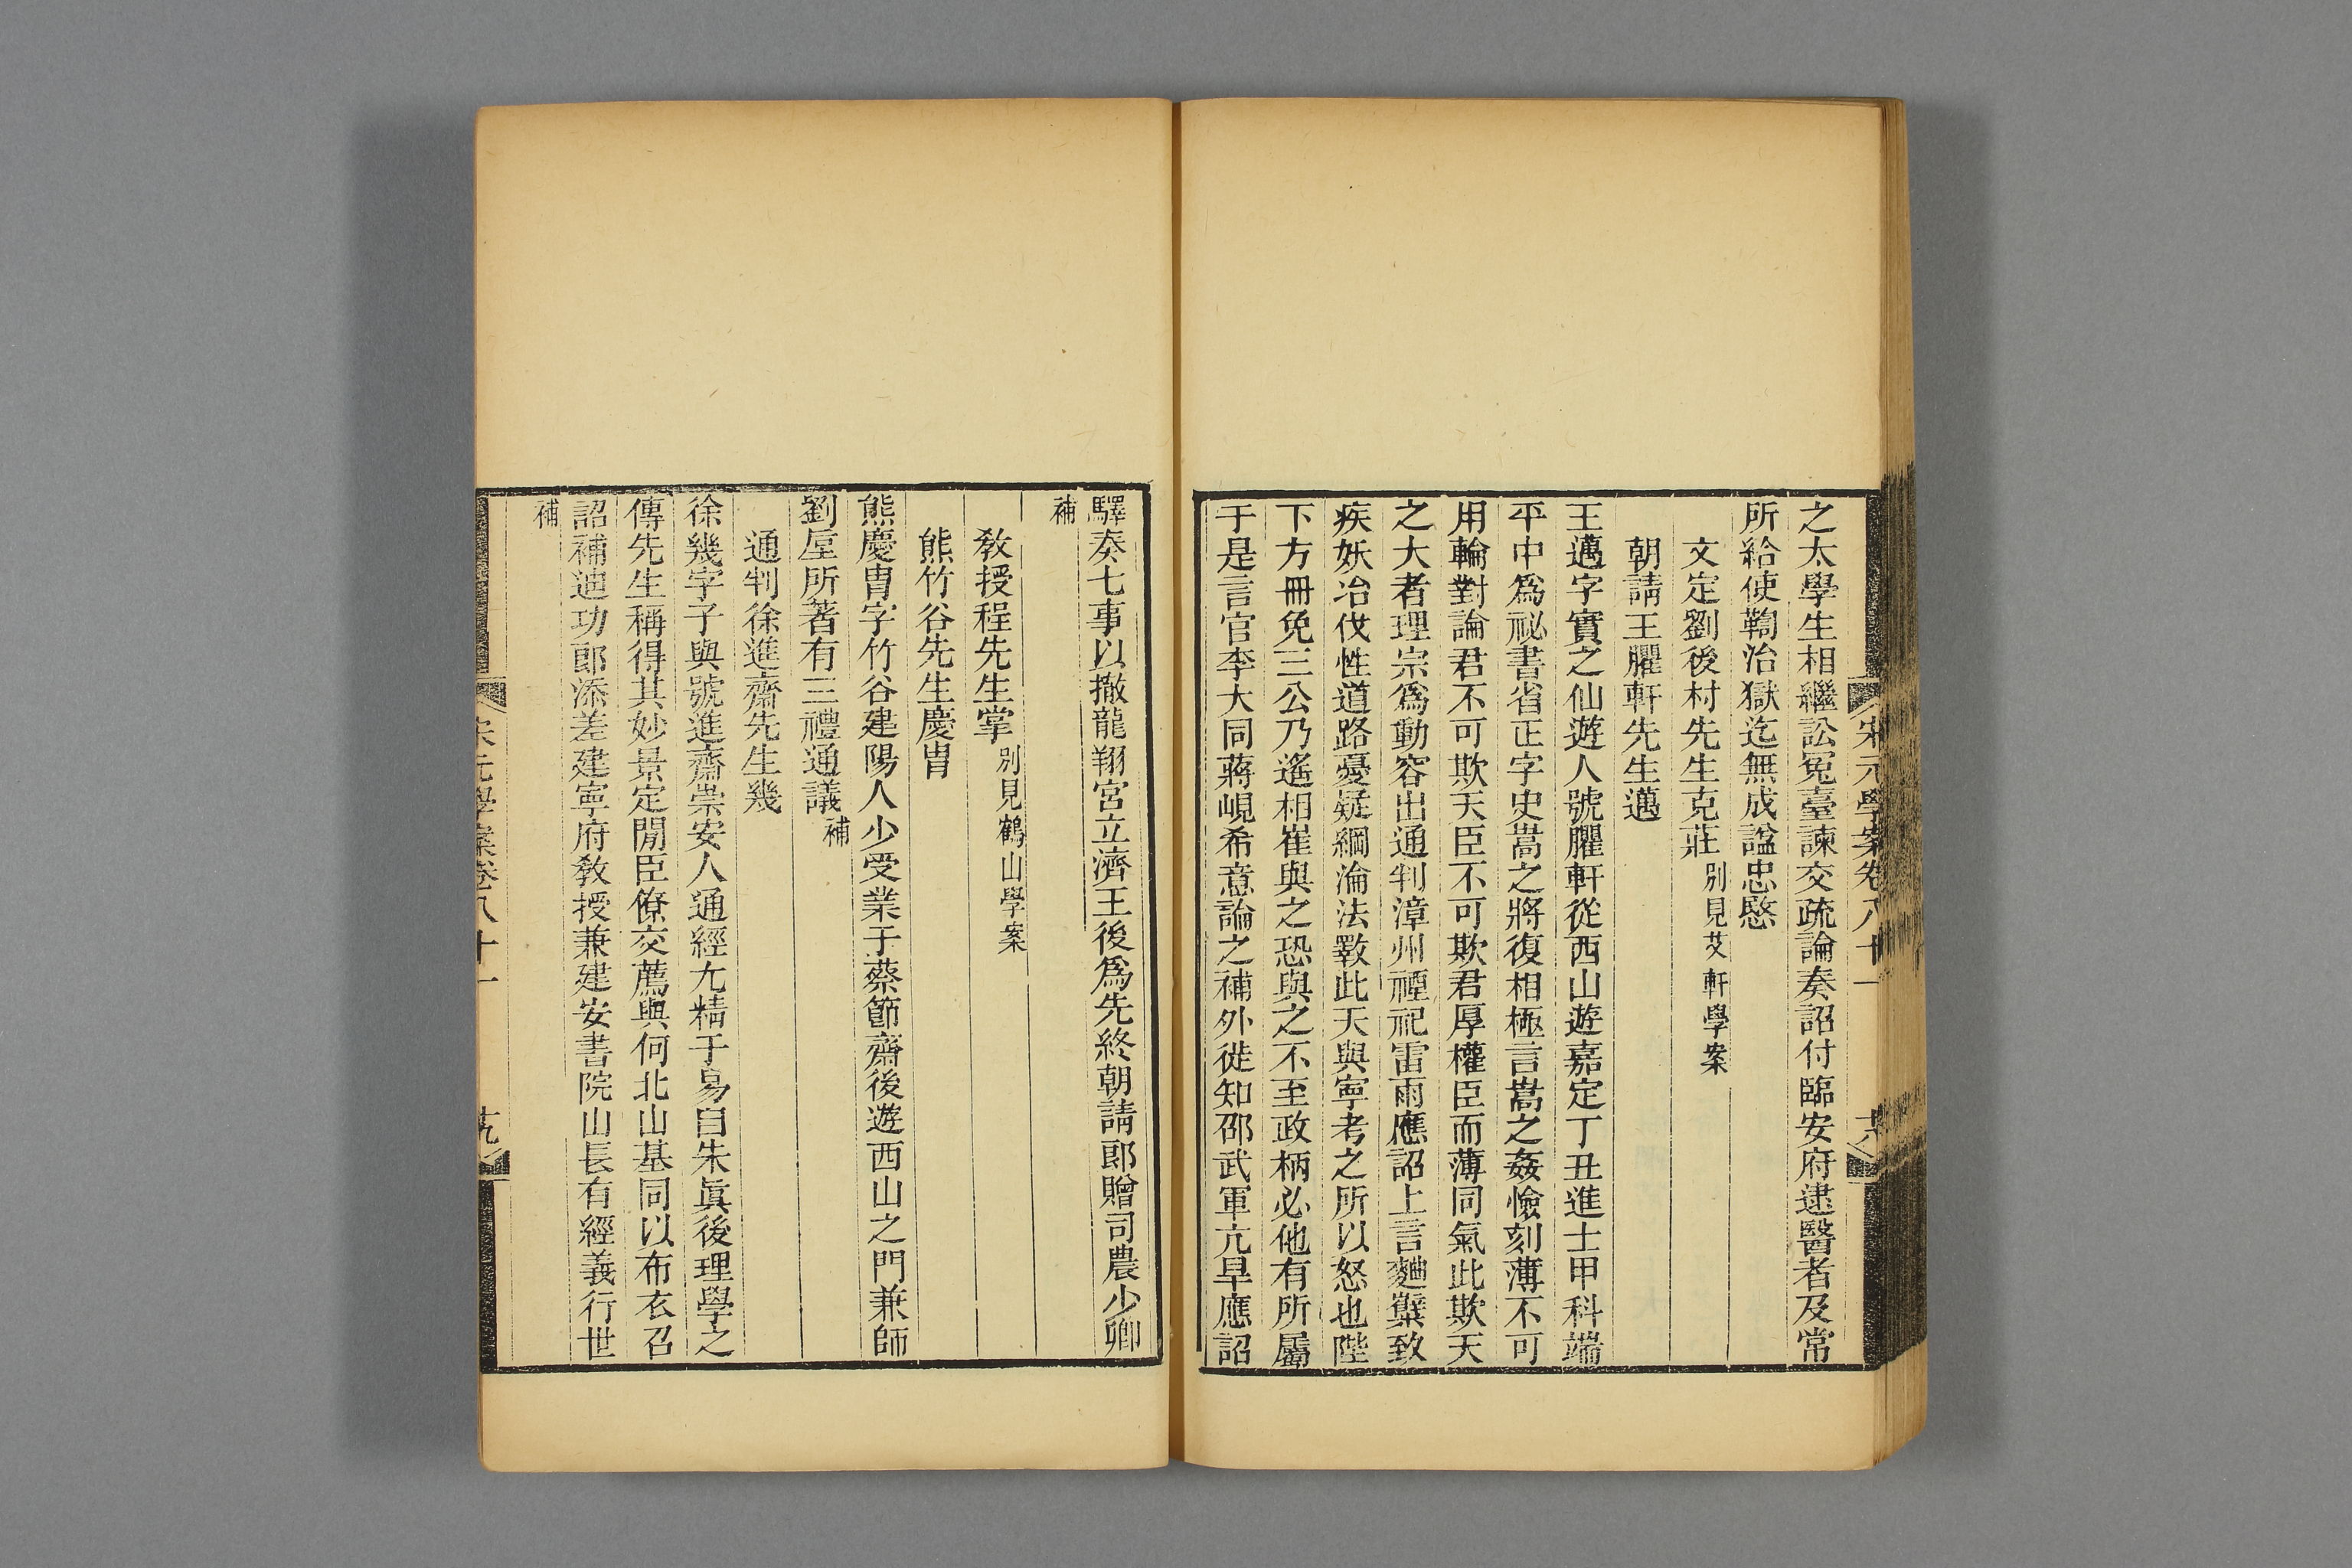 宋元學案卷八十一
十八
之太學生相繼訟冤臺諫交疏論奏詔付臨安府逮醫者及常
所給使鞫治獄迄無成諡忠愍
文定劉後村先生克莊別見艾軒學案
朝請王臞軒先生邁
王邁字實之仙遊人號臞軒從西山遊嘉定丁丑進士甲科端
平中爲祕書省正字史嵩之將復相極言嵩之姦憸刻薄不可
用輪對論君不可欺天臣不可欺君厚權臣而薄同氣此欺天
之大者理宗爲動容出通判漳州禋祀雷雨應詔上言麯糵致
疾妖冶伐性道路憂疑綱淪法斁此天與寧考之所以怒也陛
下方冊免三公乃遙相崔與之恐與之不至政柄必他有所屬
于是言官李大同蔣峴希意論之補外徙知邵武軍亢旱應詔
驛奏七事以撤龍翔宮立濟王後爲先終朝請郎贈司農少卿
補
敎授程先生掌別見鶴山學案
熊竹谷先生慶冑
熊慶冑字竹谷建陽人少受業于蔡節齋後遊西山之門兼師
劉垕所著有三禮通議補
通判徐進齋先生幾
徐幾字子與號進齋崇安人通經尤精于易自朱眞後理學之
傳先生稱得其妙景定閒臣僚交薦與何北山基同以布衣召
詔補迪功郎添差建寧府敎授兼建安書院山長有經義行世
補
宋元學案卷八十一
十九